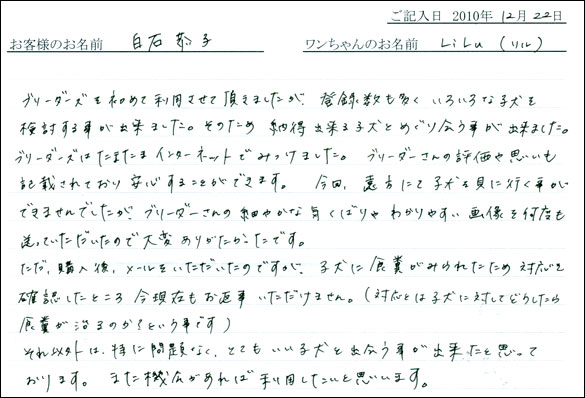 ご記入日 2010年 12月 22日
お客様のお名前 白石 恭子 ワンちゃんのお名前 LiLu (リル)
ブリーダーズを初めて利用させて頂きましたが、登録数も多くいろいろな子犬を
検討する事が出来ました。そのため 納得出来る子犬とめぐり会う事が出来ました。
ブリーダーズはたまたまインターネットでみつけました。 ブリーダーさんの評価や思いも
記載されており安心することができます。 今回、遠方にて子犬を見に行く事が
できませんでしたが、ブリーダーさんの細やかな気くばりやわかりやすい画像を何度も
送っていただいたので大変ありがたかったです。
ただ、購入後、メールをいただいたのですが、子犬に食糞がみられたため対応を
確認したところ 今現在もお返事いただけません。(対応とは子犬に対してどうしたら
食糞が治るのか?という事です)
それ以外は、特に問題なく、とてもいい子犬と出会う事が出来たと思って
おります。 また機会があれば利用したいと思います。